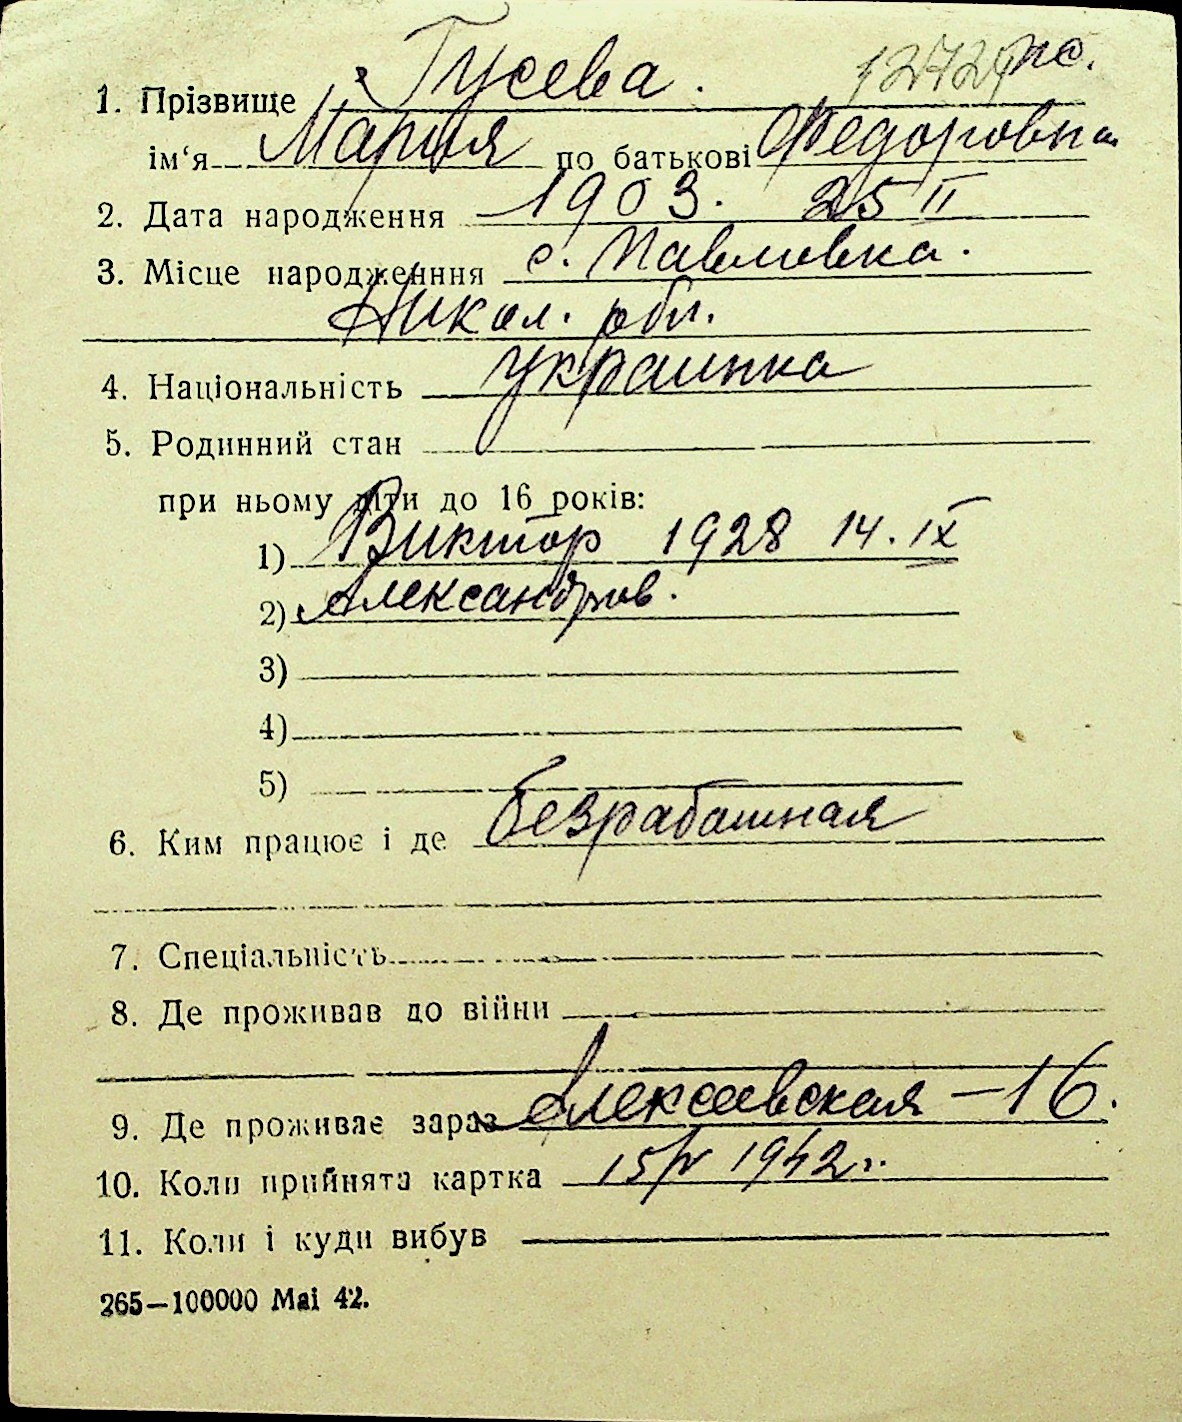 1. Прізвище Гусева.
ім‘я Мария по батькові Федоровна
2. Дата народження 1903. 25 II
3. Місце народженння с. Павловка.
Никол. обл.
4. Національність украинка
5. Родинний стан
при ньому діти до 16 років:
1) Виктор 1928 14. IX
2) Александров.
3)
4)
5)
6. Ким працює і де безработная
7. Спеціальність
8. Де проживав до війни
9. Де проживає зараз Алексеевская – 16.
10. Коли прийнята картка 1942 г.
11. Коли і куди вибув
265—100000 Mai 42.